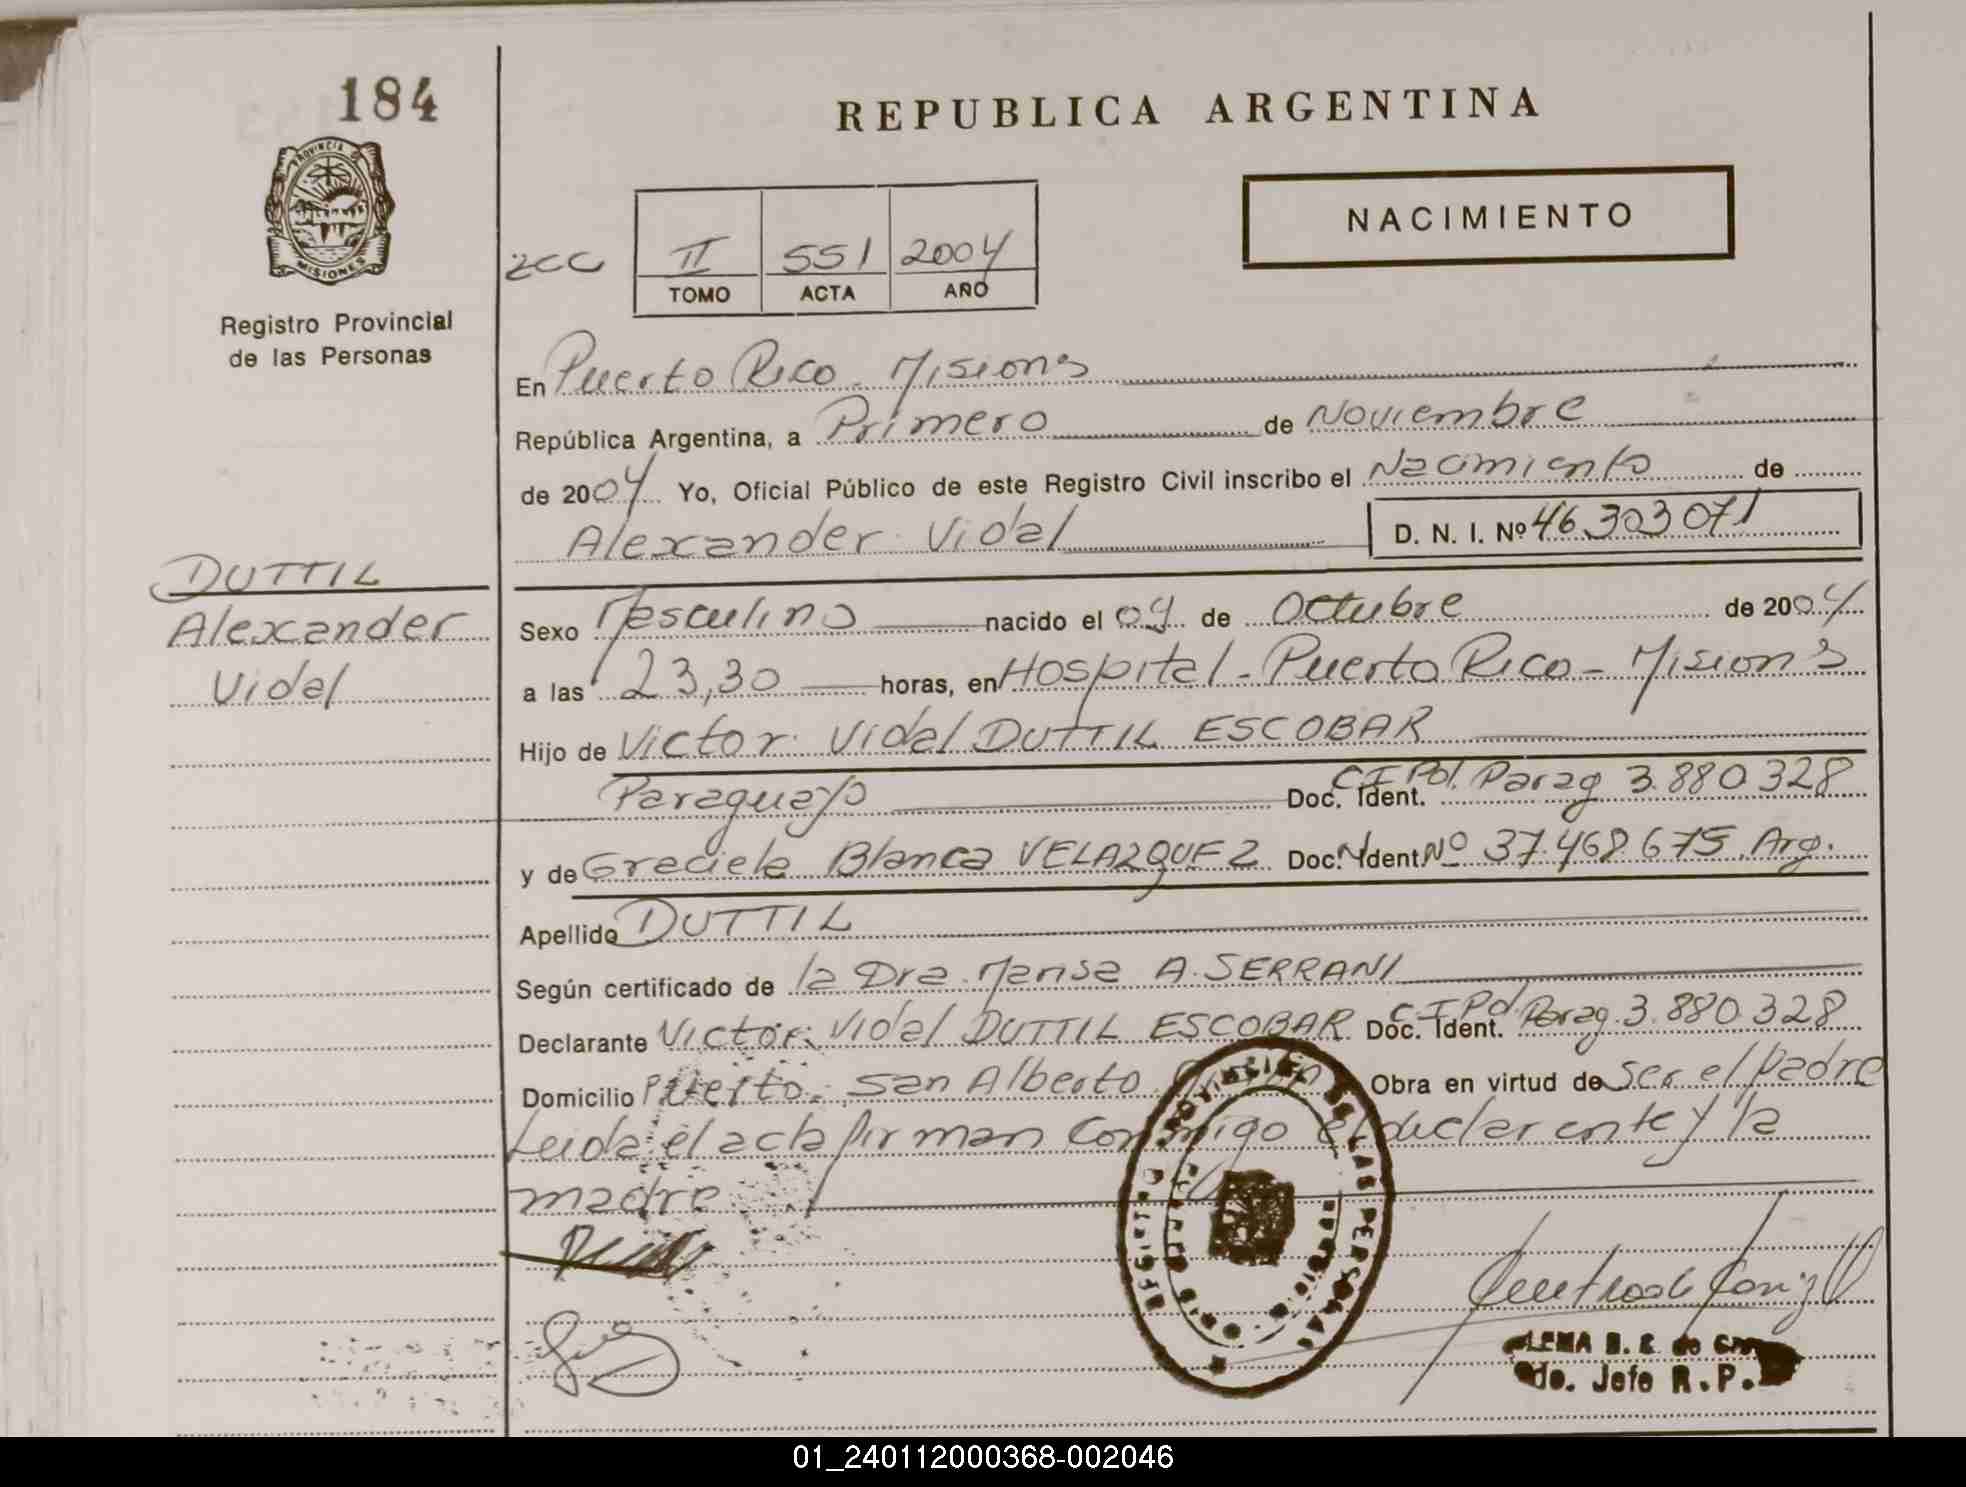 184
REPUBLICA ARGENTINA
PROVINCIA DE
MISIONES
NACIMIENTO
Registro Provincial
de las Personas
II 551 2004
TOMO ACTA AÑO
En Puerto Rico - Misiones
República Argentina, a Primero de Noviembre
de 2004 Yo, Oficial Público de este Registro Civil inscribo el Nacimiento de
Alexander Vidal D. N. I. Nº 46.303.071
DUTTIL
Alexander
Vidal
Sexo Masculino nacido el 04 de Octubre de 2004
a las 23,30 horas, en Hospital - Puerto Rico - Misiones
Hijo de Victor Vidal DUTTIL ESCOBAR
Paraguayo Doc. Ident. C I Pol. Parag 3.880.328
y de Graciela Blanca VELAZQUEZ Doc. Ident Nº 37.468.675 Arg.
Apellido DUTTIL
Según certificado de la Dra. Marisa A. SERRANI
Declarante Victor Vidal DUTTIL ESCOBAR Doc. Ident. C I Pol. Parag. 3.880.328
Domicilio Puerto San Alberto Obra en virtud de ser el padre
Leida el acta firman conmigo el declarante y la
madre
REGISTRO PROVINCIAL DE LAS PERSONAS
do. Jefe R.P.
01_240112000368-002046